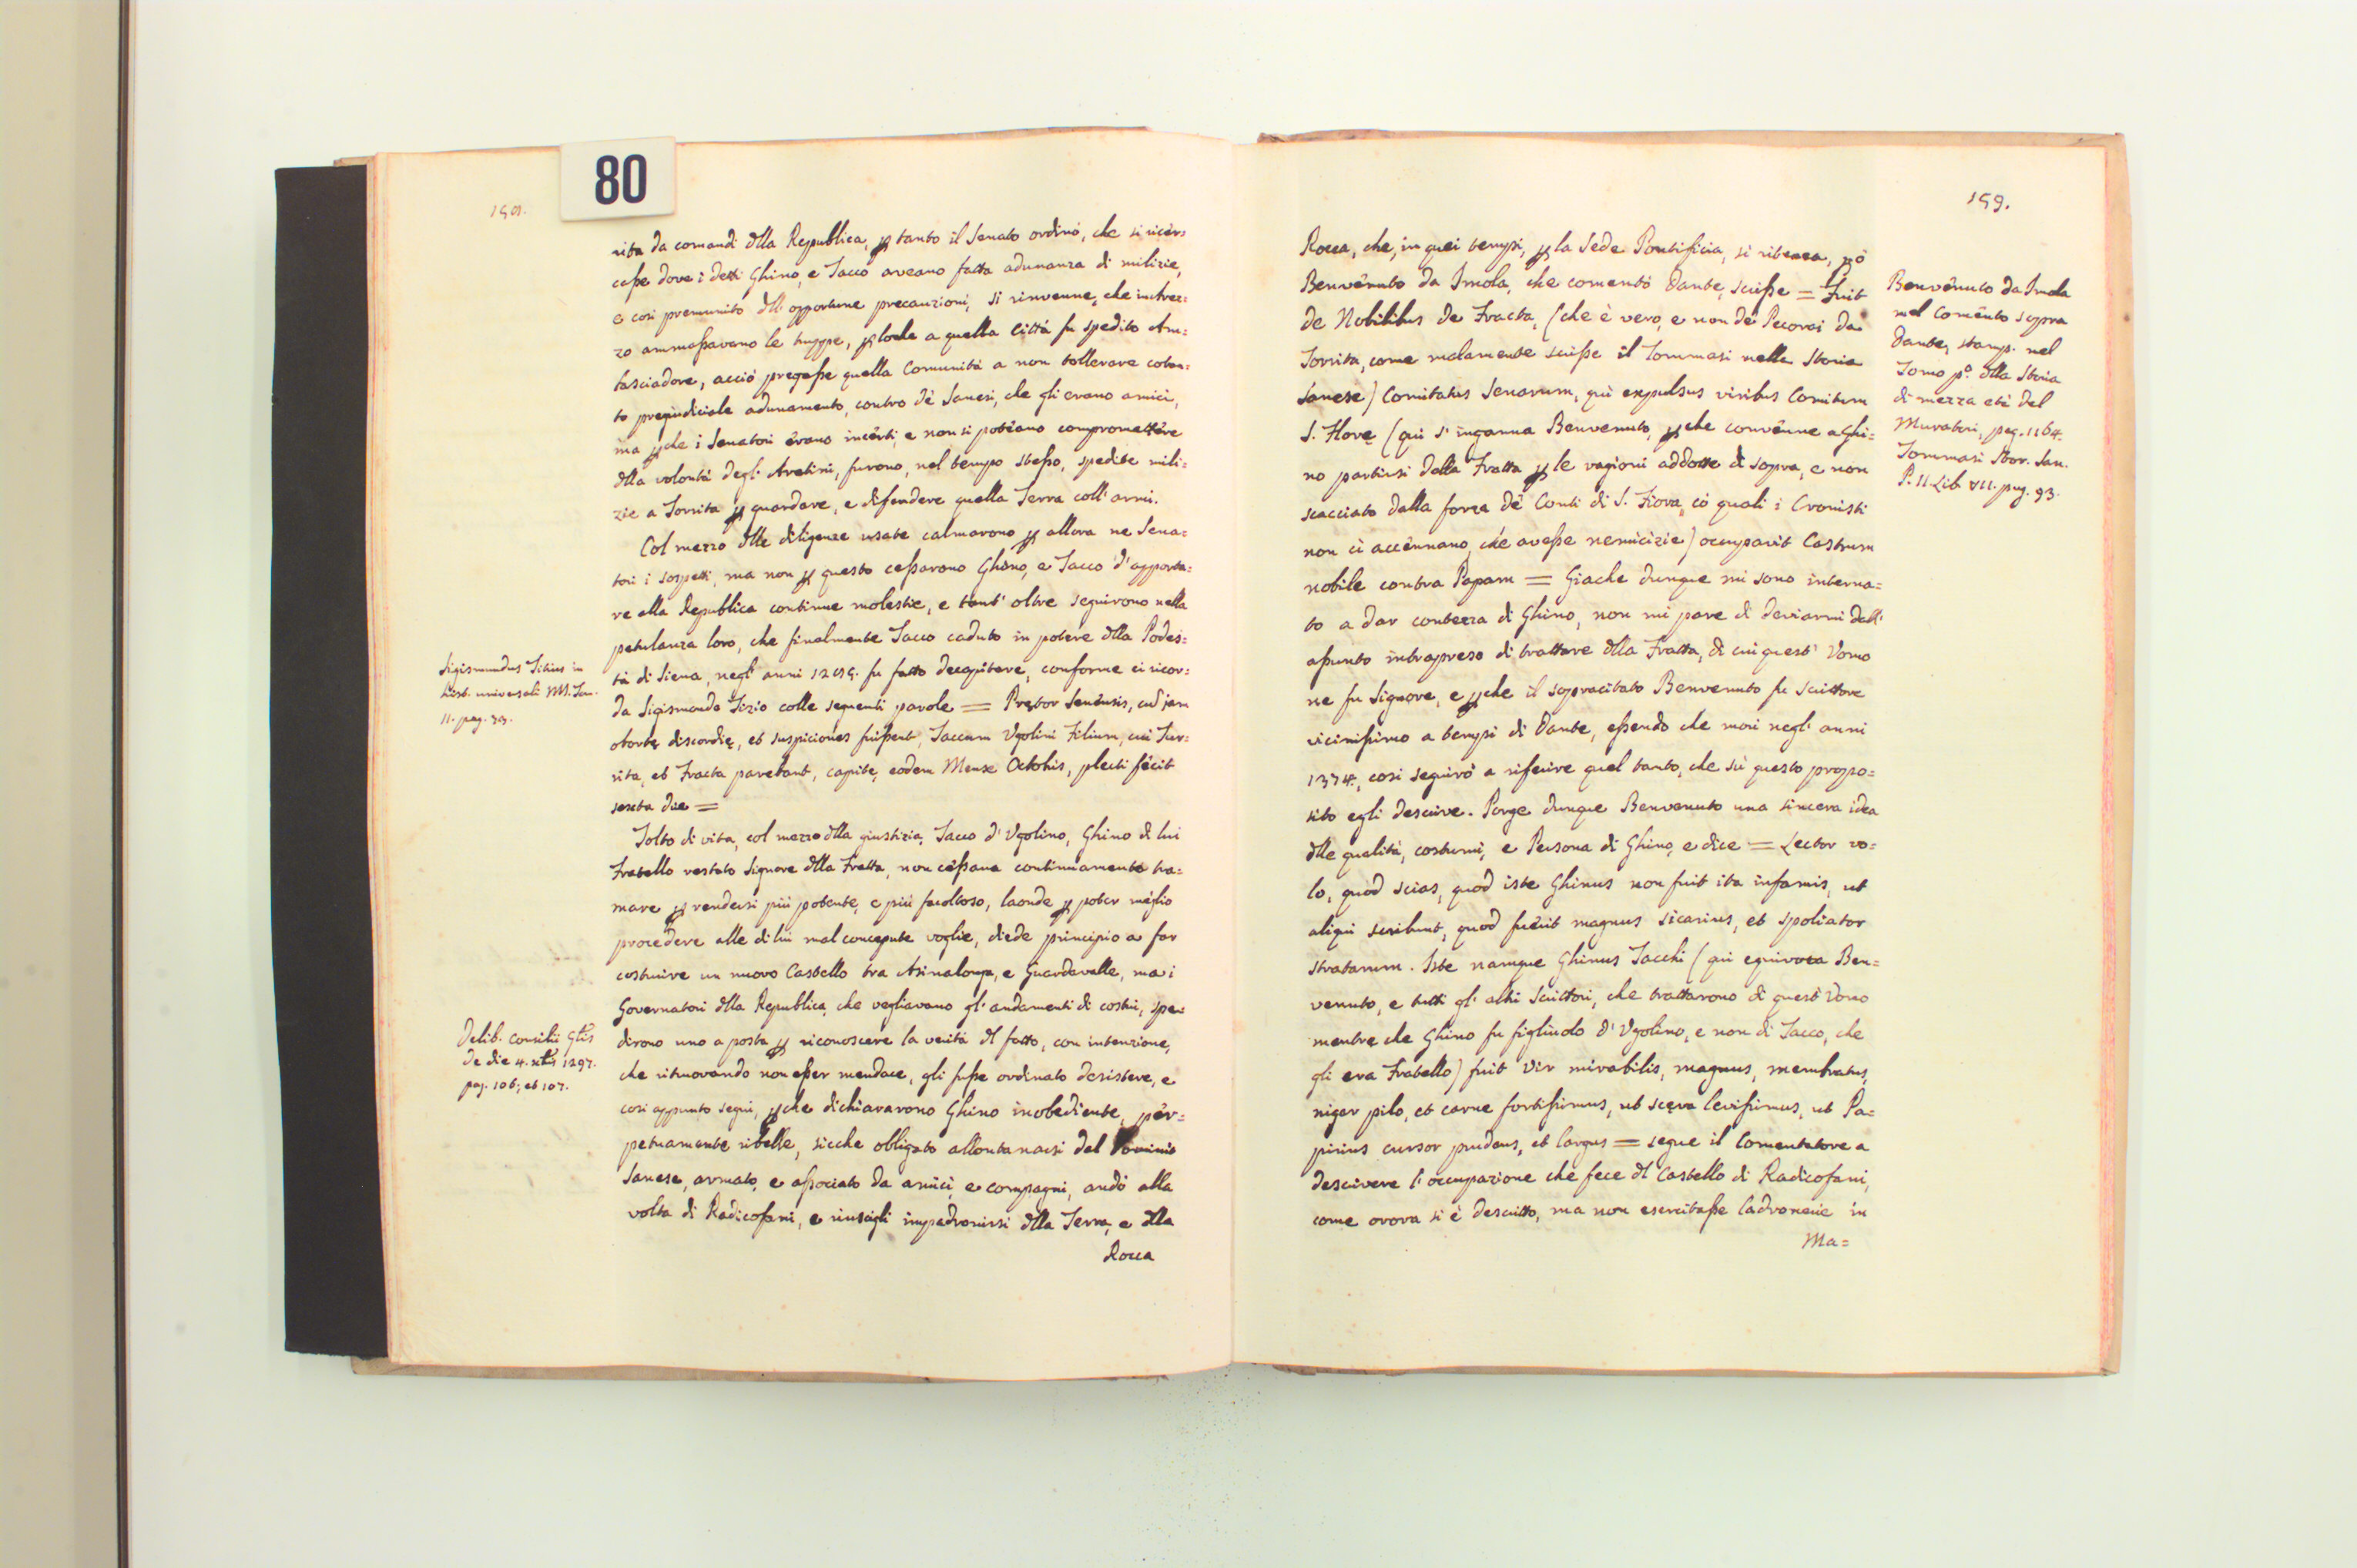 80
158.
rita da comandi dlla Republica, p tanto il Senato ordinò, che si ricer=
casse dove i detti Ghino, e Tacco aveano fatta adunanza di milizie,
e così premunito dll' opportune precauzioni, si rinvenne, che in Arez=
zo ammassavano le truppe, p loche a quella Città fu spedito Am=
basciadore, acciò pregasse quella Comunità a non tollerare cotan=
to pregiudiciale adunamento, contro de' Sanesi, che gli erano amici,
ma pche i Senatori erano incerti, e non si poteano compromettere
dlla volontà degl' Aretini, furono, nel tempo stesso, spedite mili=
zie a Torrita p guardare, e difendere quella Terra coll' armi.
Col mezzo dlle diligenze usate calmarono p allora ne Sena=
tori i sospetti, ma non p questo cessarono Ghino, e Tacco d' apporta=
re alla Republica continue molestie, e tant' oltre seguirono nella
petulanza loro, che finalmente Tacco caduto in potere dlla Podes=
tà di Siena, negl' anni 1285. fu fatto decapitare, conforme ci ricor=
da Sigismondo Tizio colle seguenti parole = Prętor Senensis, cud jam
obortę discordię, et suspiciones fuissent, Taccum Ugolini Filium, cui Tur=
rita, et Fracta parebant, capite, eodem Mense Octobris, plecti fecit
sexta die =
Tolto di vita, col mezzo dlla giustizia, Tacco d' Ugolino, Ghino di lui
Fratello restato Signore dlla Fratta, non cessava continuamente tra=
mare p rendersi più potente, e più facoltoso, laonde p poter meglio
procedere alle di lui mal concepute voglie, diede principio a far
costruire un nuovo Castello tra Asinalonga, e Guardavalle, ma i
Governatori dlla Republica, che vegliavano gl' andamenti di costui, spe=
dirono uno a posta p riconoscere la verità dl fatto, con intenzione,
che ritruovando non esser mendace, gli fusse ordinato desistere, e
così appunto seguì, pche dichiararono Ghino inobediente, per=
petuamente ribelle, sicche obligato allontanarsi dal Dominio
Sanese, armato, e associato da amici, e compagni, andò alla
volta di Radicofani, e riuscigli impadronirsi dlla Terra, e dlla
Rocca
Sigismundus Titius in
hist. universali MS. Tom.
11. pag. 39.
Delib. Consilii Glis
de die 4. xbris 1297.
pag. 106, et 107.
159.
Rocca, che, in quei tempi, p la Sede Pontificia, si riteneva, pò
Benvenuto da Imola, che comentò Dante, scrisse = Fuit
de Nobilibus de Fracta, (che è vero, e non de' Pecorai da
Torrita, come malamente scrisse il Tommasi nella Storia
Sanese) Comitatus Senarum, qui expulsus viribus Comitum
S. Flore (quì s' inganna Benvenuto, pche convenne a Ghi=
no partirsi dalla Fratta p le ragioni addotte di sopra, e non
scacciato dalla forza de' Conti di S. Fiora, co' quali i Cronisti
non ci accennano, che avesse nemicizie) occupavit Castrum
nobile contra Papam = Giache dunque mi sono interna=
to a dar contezza di Ghino, non mi pare di deviarmi dall'
assunto intrapreso di trattare dlla Fratta, di cui quest' Uomo
ne fu Signore, e pche il sopracitato Benvenuto fu scrittore
vicinissimo a tempi di Dante, essendo che morì negl' anni
1374., così seguirò a riferire quel tanto, che su questo propo=
sito egli descrive. Porge dunque Benvenuto una sincera idea
dlle qualità, costumi, e Persona di Ghino, e dice = Lector vo=
lo, quod scias, quod iste Ghinus non fuit ita infamis, ut
aliqui scribunt, quod fuerit magnus sicarius, et spoliator
stratarum. Iste namque Ghinus Tacchi (quì equivoca Ben=
venuto, e tutti gl' altri Scrittori, che trattarono di quest' Uomo
mentre che Ghino fu figliuolo d' Ugolino, e non di Tacco, che
gli era Fratello) fuit vir mirabilis, magnus, membratus,
niger pilo, et carne fortissimus, ut scęva levissimus, ut Pa=
pirius cursor prudens, et largus = segue il Comentatore a
descrivere l' occupazione che fece dl Castello di Radicofani,
come ovova si è descritto, ma non esercitasse ladronecie in
Ma=
Benvenuto da Imola
nel Comento sopra
Dante, stamp. nel
Tomo pº. dlla Storia
di mezza età del
Muratori, pag. 1164.
Tommasi Stor. San.
P. 11 Lib. VII. pag. 93.